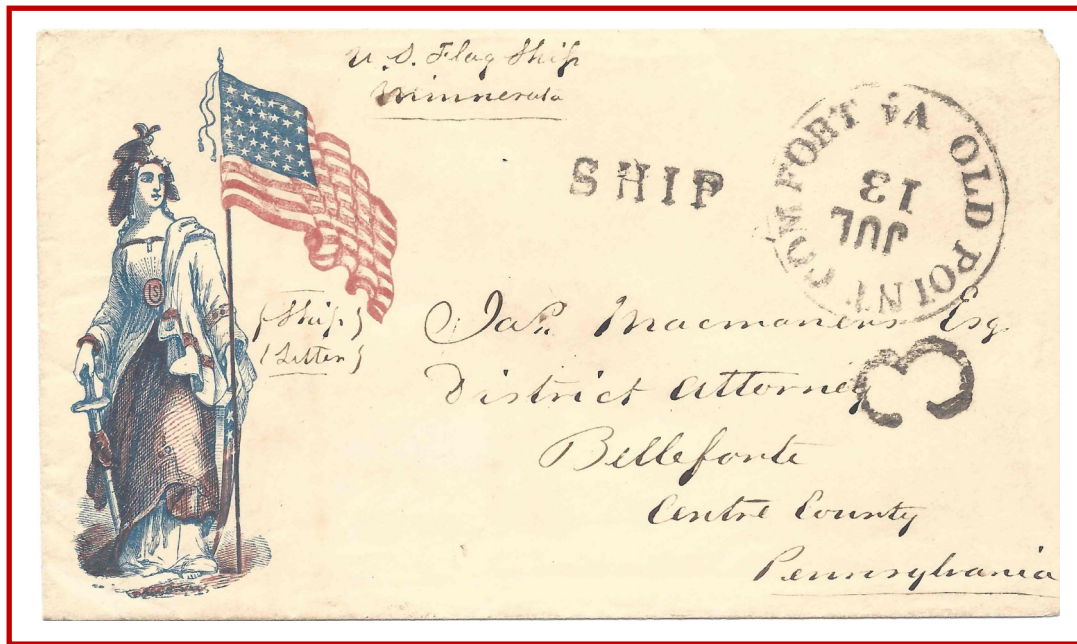 U. S. Flag Ship
Minnesota
SHIP
OLD POINT COMFORT VA
JUL
13
3
(Ship)
(Letter)
Jas. Macmanus Esq
District Attorney
Bellefonte
Centre County
Pennsylvania
US